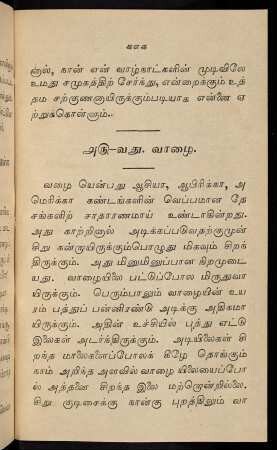 ளுல், கான் என் வாழ்காட்களின் முடிவிலே
உமது சமுகத்திற் சேர்த்து, என்றைக்கும் உத்
தம சற்குணனாயிருக்கும்படியாக என்னை ஏ
ற்றுக்கொள்ளும்.
வது. வாழை.
வழை யென்பது ஆசியா, ஆபிரிக்கா, அ
மெரிக்கா கண்டங்களின் வெப்பமான தே
சங்களிற் சாதாரணமாய் உண்டாகின்றது.
அது காற்றினால் அடிக்கப்படுவதற்குமுன்
சிறு கன்றாயிருக்கும்பொழுது மிகவும் சிறக்
திருக்கும். அது மினுமினுப்பான கிறமுடைய
யது. வாழையிலை பட்டுப்போல மிருதுவா
யிருக்கும். பெரும்பாலும் வாழையின் உய
ரம் பத்துப் பன்னிரண்டு அடிக்கு அதிகமா
யிருக்கும். அதின் உச்சியில் பத்து எட்டு
இலைகள் அடர்க்திருக்கும். அடியிலைகள் சி
றக்த மாலைகளைப்போலக் கீழே தொங்கும்
காம் அறிக்த அளவில் வாழை யிலையைப்போ
ல் அத்தனை சிறக்த இலை மற்றொன்றில்லை.
சிறு குடிசைக்கு கான்கு புறத்திலும் வா